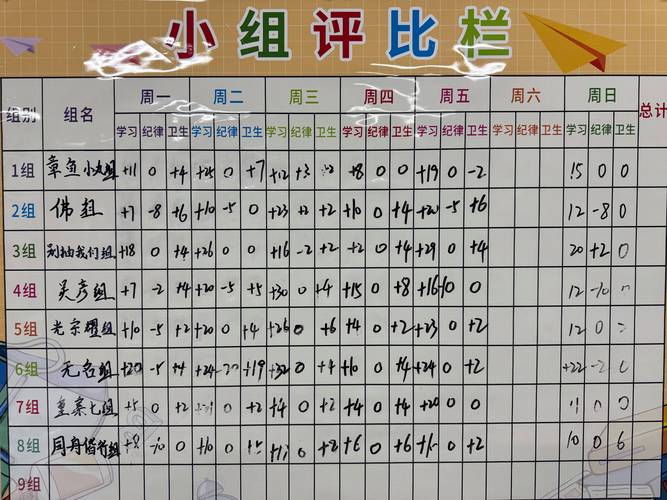 小组评比栏
组别 组名 周一 周二 周三 周四 周五 周六 周日 总计
学习 纪律 卫生 学习 纪律 卫生 学习 纪律 卫生 学习 纪律 卫生 学习 纪律 卫生 学习 纪律 卫生 学习 纪律 卫生
1组 章鱼小丸组 +11 0 +4 +25 0 +7 +12 +3 +8 0 0 +19 0 -2 15 0 0
2组 佛组 +7 -8 +6 +10 -5 0 +23 +2 +2 +10 0 +4 +20 -5 +6 12 -8 0
3组 别抽我们组 +18 0 +4 +26 0 0 +16 -2 +2 +2 0 +4 +29 0 +4 20 +2 0
4组 吴彦组 +7 -2 +4 +20 -5 +5 +30 0 +4 +15 0 +8 +16 -10 0 12 -10
5组 光宗耀组 +10 -5 +2 +20 0 +4 +26 0 +6 +4 0 +2 +23 0 +2 12 0
6组 无名组 +20 -5 +4 +24 -20 +19 +32 0 +4 +10 0 +4 +24 0 +2 +22 -2 0
7组 皇家七组 +5 0 +2 0 +2 +4 0 +2 +4 0 0 +20 0 0 0 0
8组 同舟偕行组 +8 -10 0 +10 0 0 +2 +6 0 +6 0 +2 10 0 6
9组